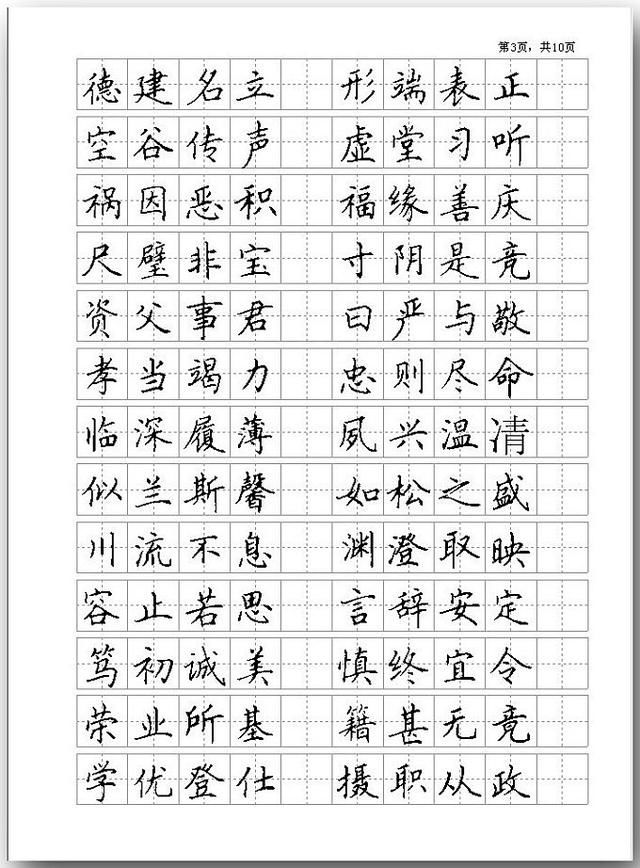 第3页，共10页
德建名立 形端表正
空谷传声 虚堂习听
祸因恶积 福缘善庆
尺璧非宝 寸阴是竞
资父事君 曰严与敬
孝当竭力 忠则尽命
临深履薄 夙兴温凊
似兰斯馨 如松之盛
川流不息 渊澄取映
容止若思 言辞安定
笃初诚美 慎终宜令
荣业所基 籍甚无竟
学优登仕 摄职从政